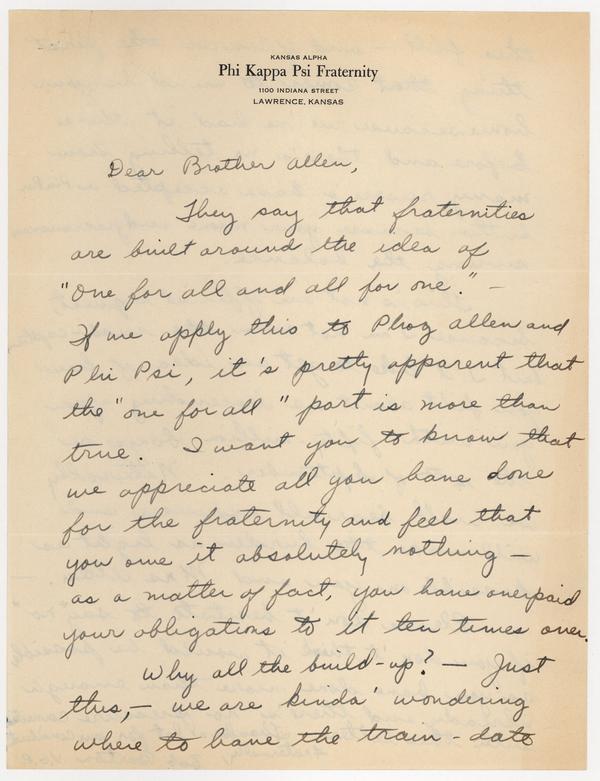 KANSAS ALPHA
Phi Kappa Psi Fraternity
1100 INDIANA STREET
LAWRENCE, KANSAS
Dear Brother Allen,
They say that fraternities
are built around the idea of
"One for all and all for one." –
If we apply this to Phog Allen and
Phi Psi, it's pretty apparent that
the "one for all" part is more than
true. I want you to know that
we appreciate all you have done
for the fraternity and feel that
you owe it absolutely nothing –
as a matter of fact, you have overpaid
your obligations to it ten times over.
Why all the build-up? – Just
this, – we are kinda' wondering
where to have the train-date